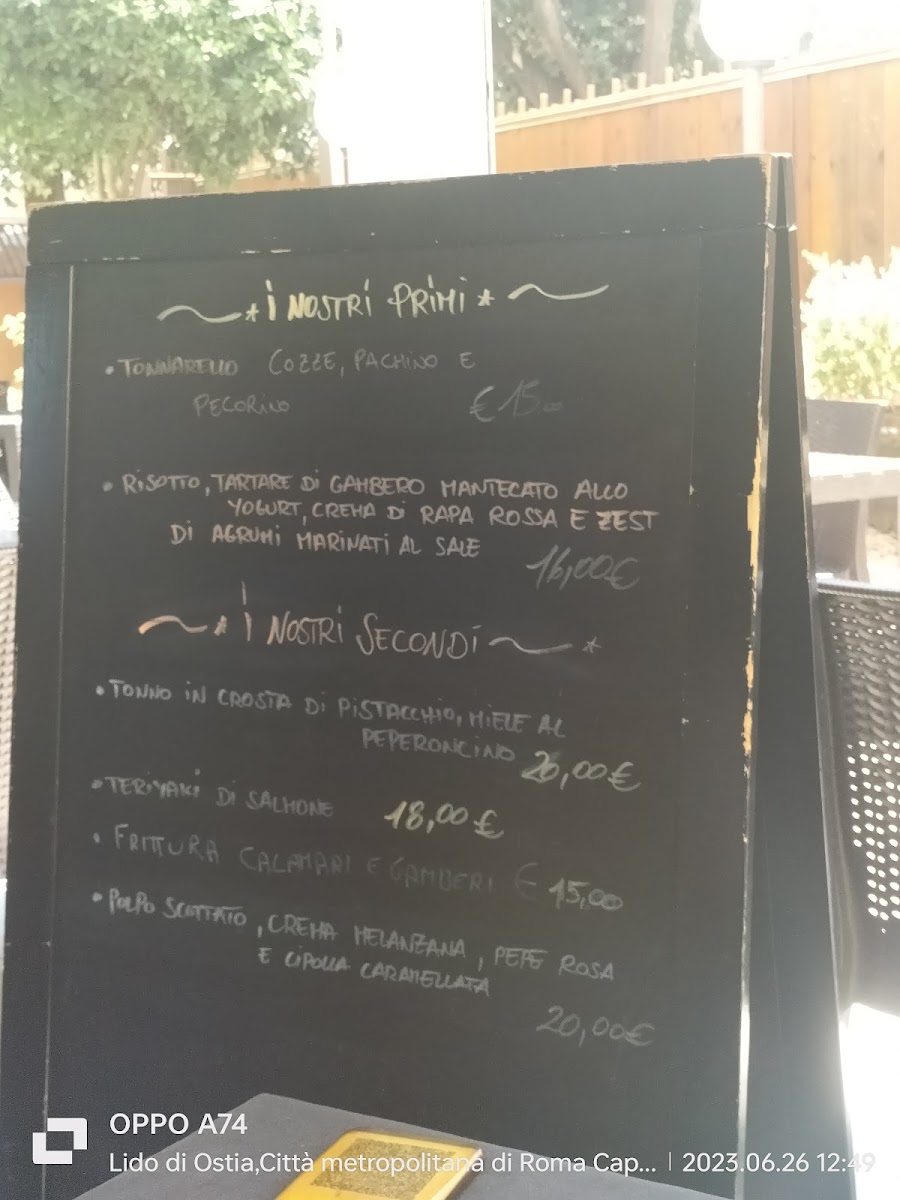 ~*I NOSTRI PRIMI*~
• TONNARELLO COZZE, PACHINO E
PECORINO €15,00
• RISOTTO, TARTARE DI GAMBERO MANTECATO ALLO
YOGURT, CREMA DI RAPA ROSSA E ZEST
DI AGRUMI MARINATI AL SALE
16,00€
~* I NOSTRI SECONDI ~*
• TONNO IN CROSTA DI PISTACCHIO, MIELE AL
PEPERONCINO 20,00€
• TERIYAKI DI SALMONE 18,00€
• FRITTURA CALAMARI E GAMBERI € 15,00
• POLPO SCOTTATO, CREMA MELANZANA, PEPE ROSA
E CIPOLLA CARAMELLATA
20,00€
OPPO A74
Lido di Ostia,Città metropolitana di Roma Cap... | 2023.06.26 12:49